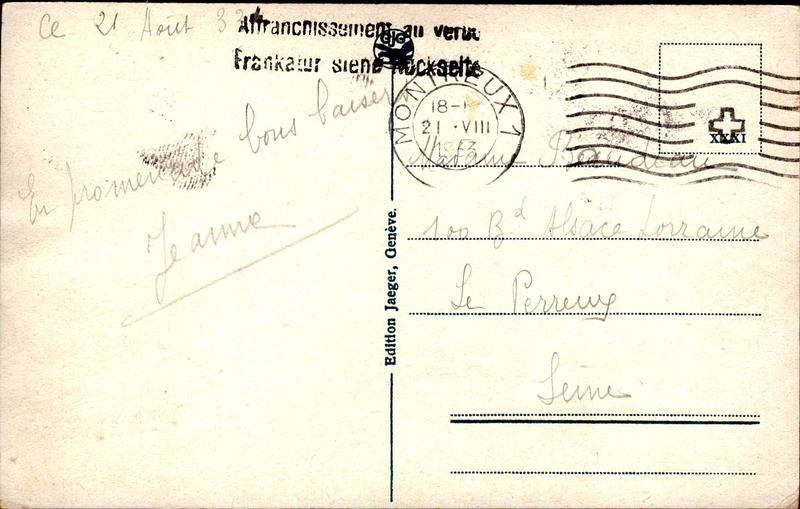 Ce 21 Aout 33
Affranchissement au verso
Frankatur siehe Rückseite
MONTREUX 1
18-
21.VIII
XXXI
En promenade bons baisers
Jeanne
Madame
100 Bd Alsace Lorraine
Le Perreux
Seine
Edition Jaeger, Genève.